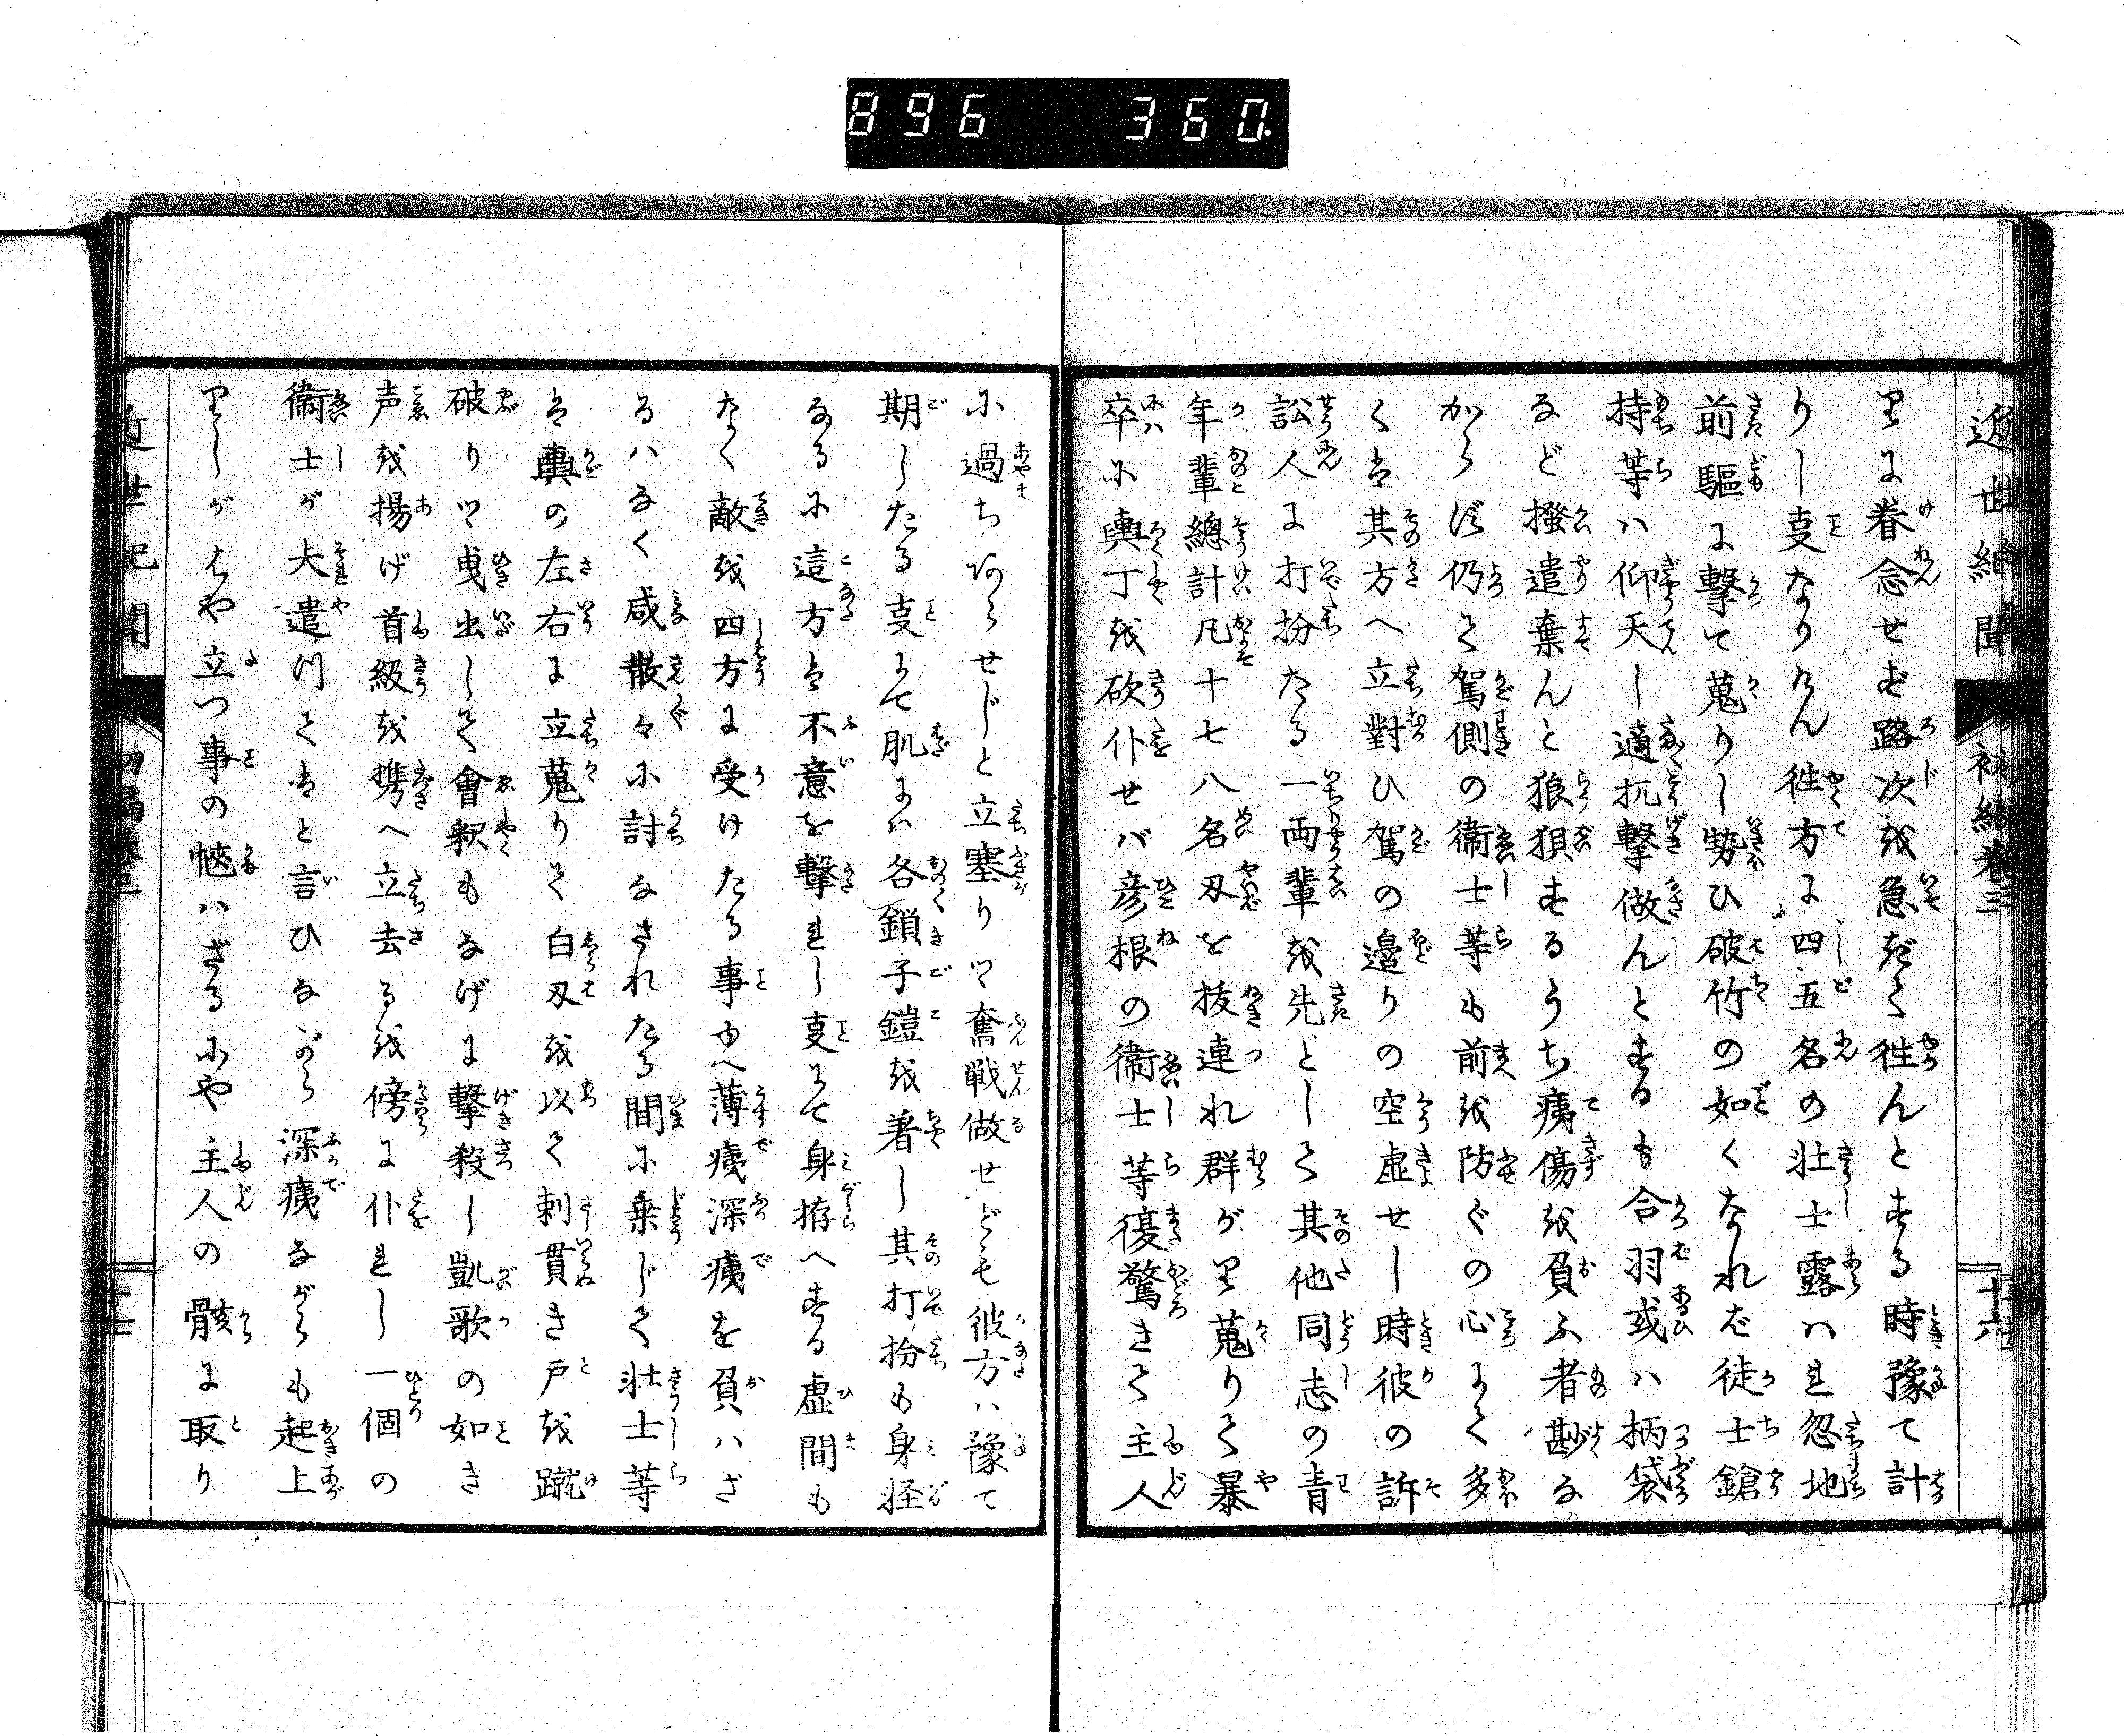 896 360
近世紀聞 初編卷三 十六
里に眷念せず路次を急だく往んとする時豫て計
りし支なりけん往方に四五名の壮士露ハれ忽地
前驅に撃て蒐りし勢ひ破竹の如くなれバ徒士鎗
持等ハ仰天し適抗撃做んとするも合羽或ハ柄袋
など撥遣棄んと狼狽するうち痍傷を負ふ者尠な
からず仍て駕側の衛士等も前を防ぐの心にて多
くは其方へ立對ひ駕の邉りの空虚せし時彼の訴
訟人に打扮たる一両輩を先として其他同志の青
年輩總計凡十七八名刃を抜連れ群がり蒐りて暴
卒に輿丁を砍仆せバ彦根の衛士等復驚きて主人
に過ちあらせじと立塞りツヽ奮戦做せども彼方ハ豫て
期したる支にて肌にハ各鎖子鎧を着し其打扮も身軽
なるに這方は不意を撃れし支にて身拵へする虚間も
なく敵を四方に受けたる事ゆへ薄痍深痍を負ハざ
るハなく咸散々に討なされたる間に乗じて壮士等
は輿の左右に立蒐りて白刃を以て刺貫き戸を蹴
破りツヽ曳出して會釈もなげに撃殺し凱歌の如き
声を揚げ首級を携へ立去るを傍に仆れし一個の
衛士が大遣ツてはと言ひながら深痍ながらも起上
りしがはや立つ事の惬ハざるにや主人の骸に取り
近世紀聞 初編卷三